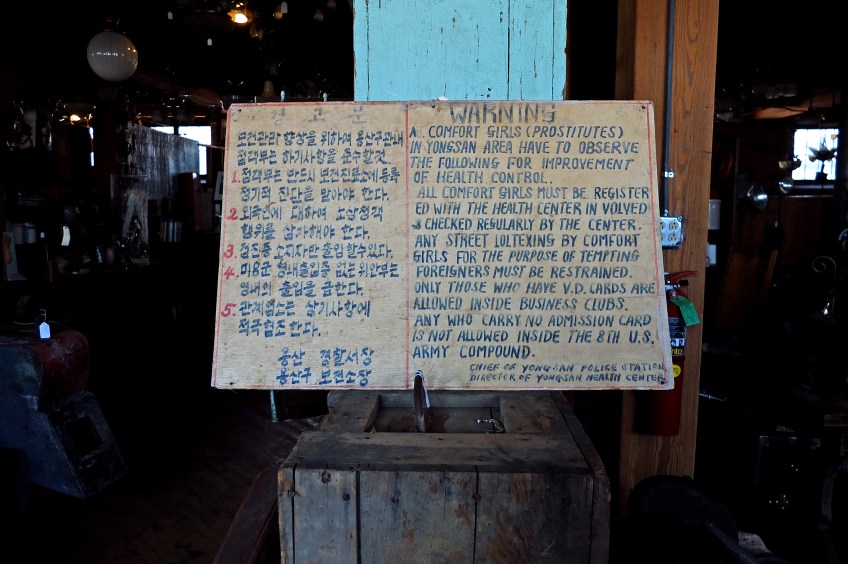 경 고 문
보건관리 향상을 위하여 용산구관내
접객부는 하기사항을 준수할것
1. 접객부는 반드시 보건진료소에 등록
정기적 진단을 받아야 한다.
2. 외국인에 대하여 노상접객
행위를 삼가해야 한다.
3. 검진증 소지자만 출입할수있다.
4. 미8군 영내출입증 없는 위안부는
영내의 출입을 금한다.
5. 관계업소는 상기사항에
적극협조 한다.
용산 경찰서장
용산구 보건소장
WARNING
ALL COMFORT GIRLS (PROSTITUTES)
IN YONGSAN AREA HAVE TO OBSERVE
THE FOLLOWING FOR IMPROVEMENT
OF HEALTH CONTROL.
ALL COMFORT GIRLS MUST BE REGISTER
ED WITH THE HEALTH CENTER IN VOLVED
& CHECKED REGULARLY BY THE CENTER.
ANY STREET LOLTEXING BY COMFORT
GIRLS FOR THE PURPOSE OF TEMPTING
FOREIGNERS MUST BE RESTRAINED.
ONLY THOSE WHO HAVE V.D. CARDS ARE
ALLOWED INSIDE BUSINESS CLUBS.
ANY WHO CARRY NO ADMISSION CARD
IS NOT ALLOWED INSIDE THE 8TH U.S.
ARMY COMPOUND.
CHIEF OF YONGSAN POLICE STATION
DIRECTOR OF YONGSAN HEALTH CENTER